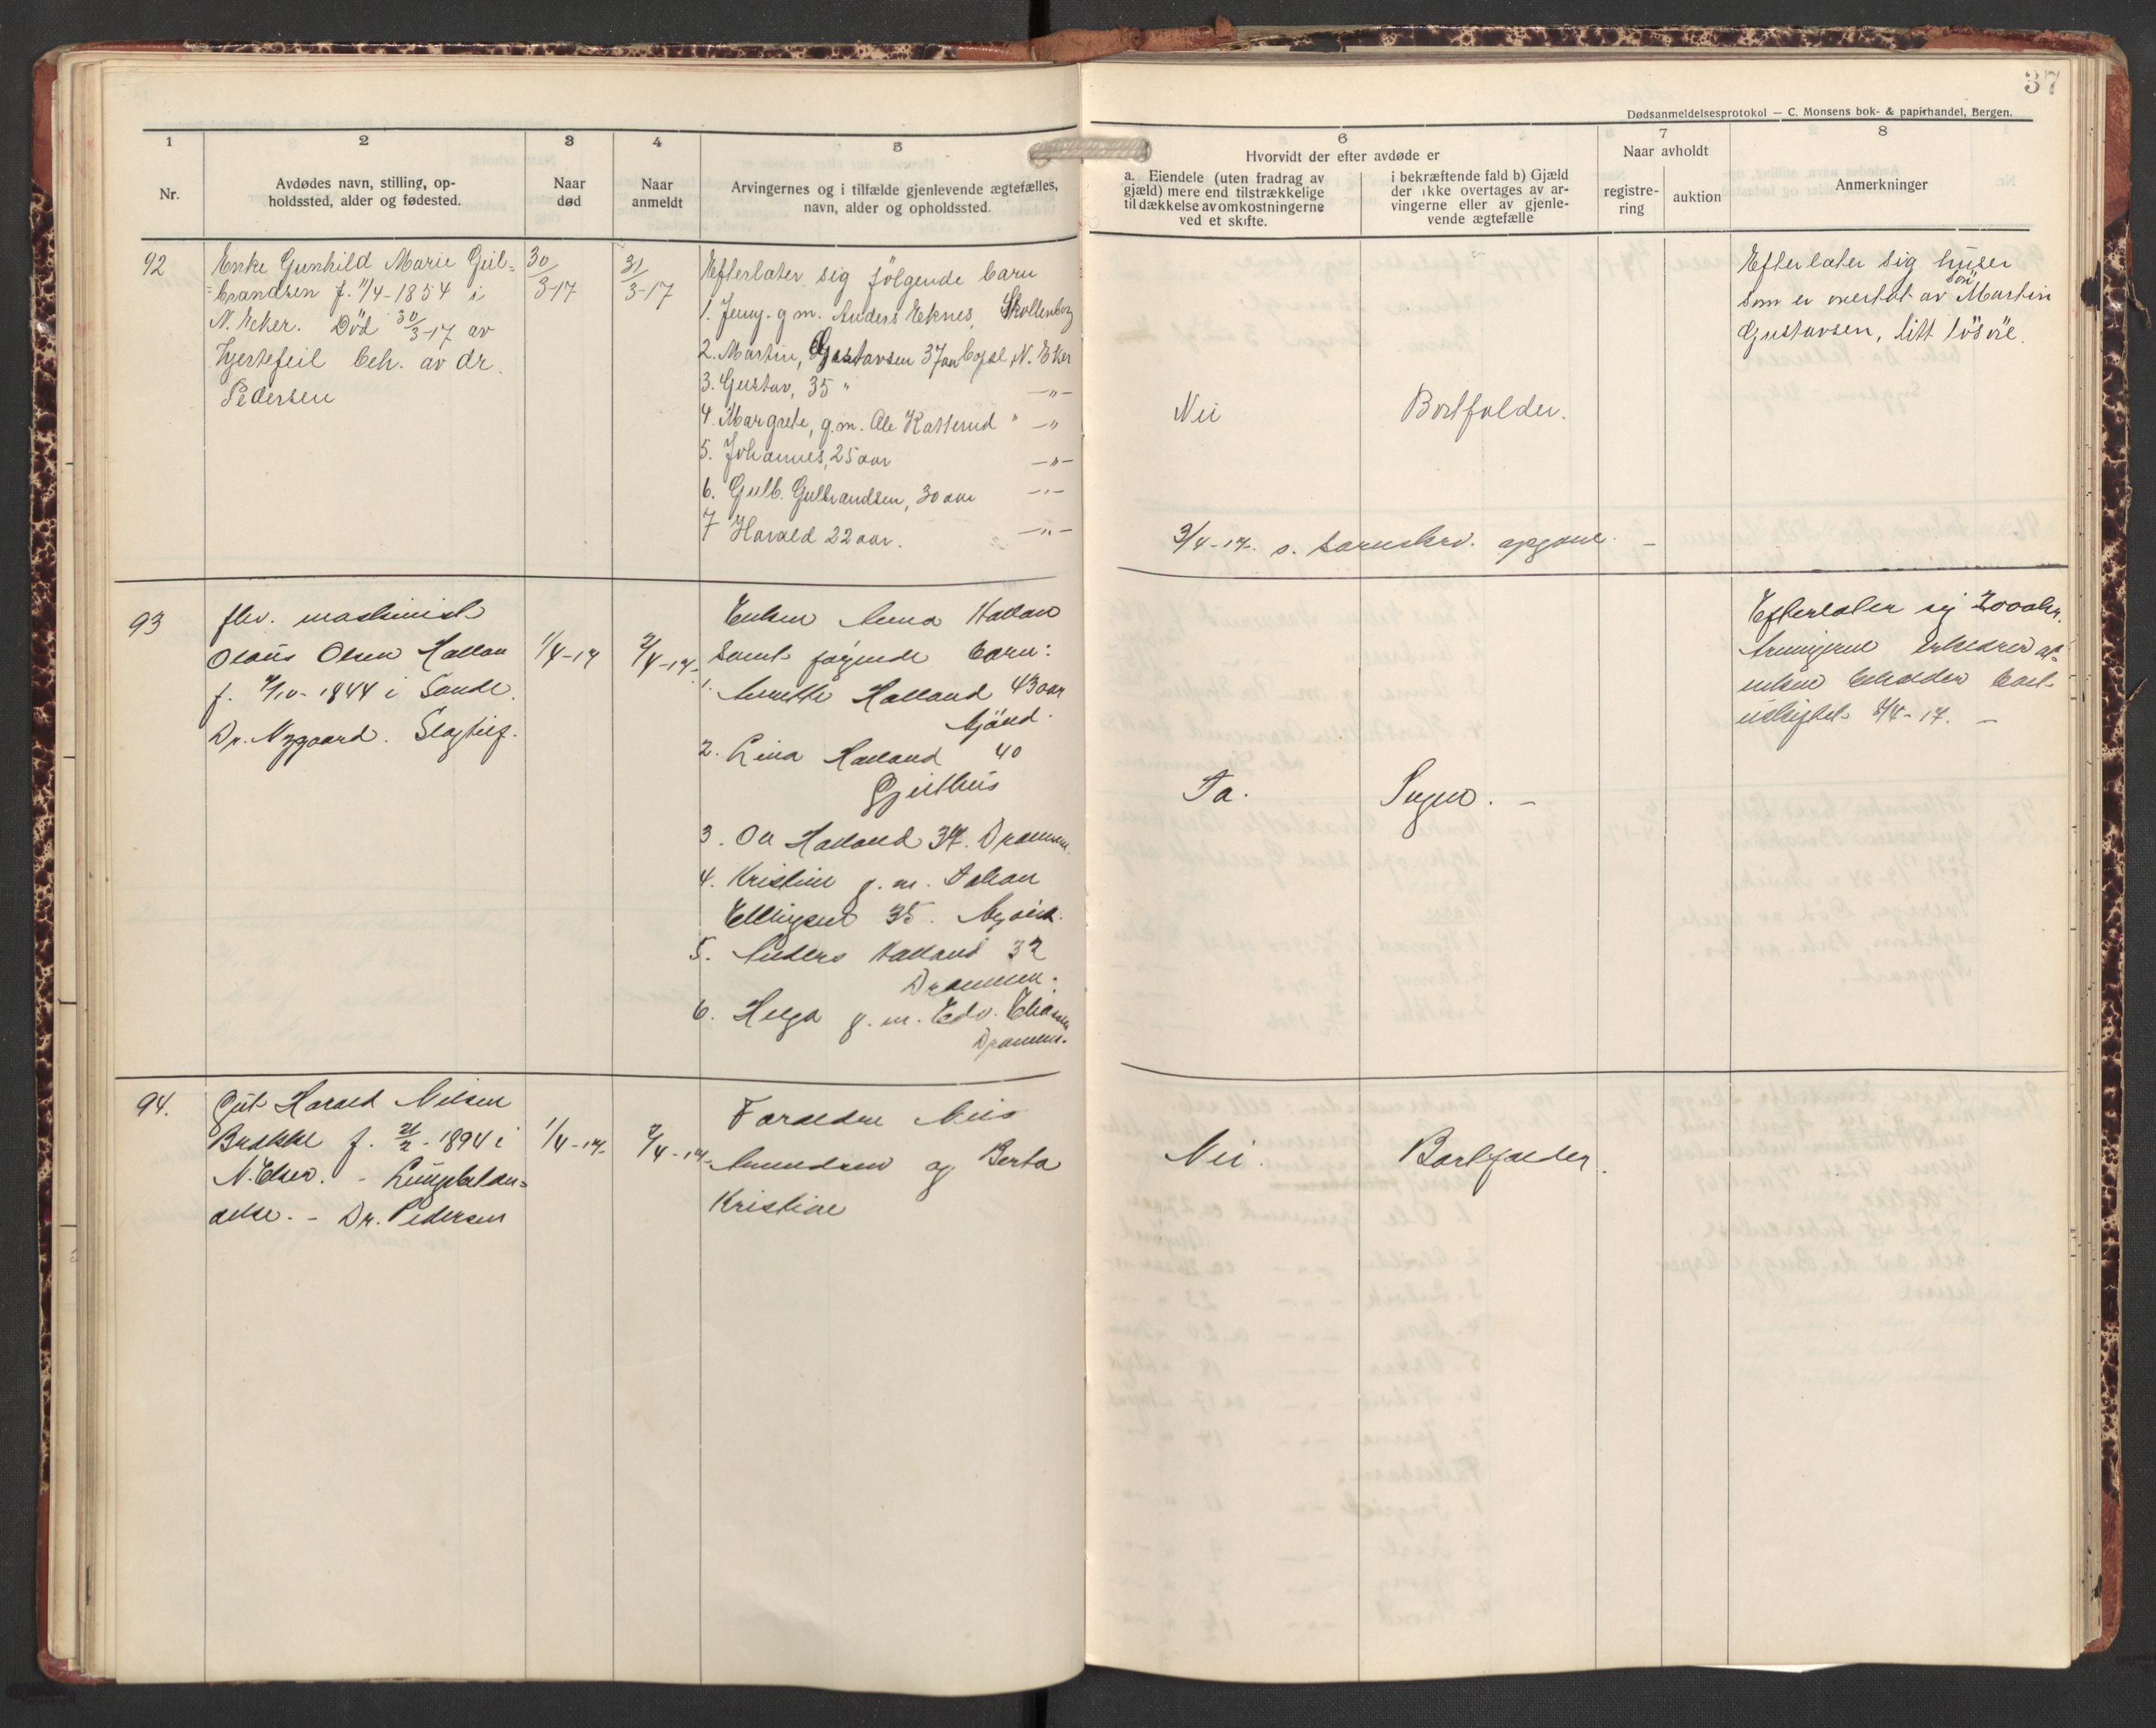 37
Dødsanmeldelsesprotokol — C. Monsens bok- & papirhandel, Bergen.
1
Nr.
2
Avdødes navn, stilling, op-
holdssted, alder og fødested.
3
Naar
død
4
Naar
anmeldt
5
Arvingernes og i tilfælde gjenlevende ægtefælles,
navn, alder og opholdssted.
6
Hvorvidt der efter avdøde er
a. Eiendele (uten fradrag av
gjæld) mere end tilstrækkelige
til dækkelse av omkostningerne
ved et skifte.
i bekræftende fald b) Gjæld
der ikke overtages av ar-
vingerne eller av gjenle-
vende ægtefælle
7
Naar avholdt
registre-
ring
auktion
8
Anmerkninger
92
Enke Gunhild Marie Gul-
brandsen f. 11/4-1854 i
N. Eker. Død 30/3-17 av
Hjertefeil beh. av dr.
Pedersen
30/3-17
31/3-17
Efterlater sig følgende barn
1. Jenny. g m. Anders Eknes, Skollenborg
2. Martin, Gustavsen 37 aar N. Eker
3. Gustav, 35 " —"—
4. Margrete, g.m. Ole Katterud " —"
5. Johannes, 25 aar —"—
6. Gulb. Gulbrandsen, 30 aar —"—
7 Harald 22 aar. —"—
Nei
Bortfalder.
3/4-17.
Efterlater sig huser
som er overtat av søn Martin
Gustavsen, litt løsøre.
93
flv. maskinist
Olaus Olsen Halland
f. 1844 i Sande.
Dr. Nygaard. Slagtilf.
1/4-17
2/4-17
Enken Anna Halland
samt følgende barn:
1. Annette Halland 43 aar
Mjönd.
2. Lina Halland 40
Gjeithus
3. Ole Halland 37. Drammen
4. Kristine g. m. Johan
Ellingsen 35.
5. Anders Halland 32
Drammen.
6. Helga g. m. Edv.
Drammen.
Ja.
Ingen. –
Efterlater sig 2000 kr.
Arvingerne erklærer at
enken beholder boet
uskiftet 2/4-17. –
94.
Gut Harald Nilsen
Brække f. 21/2-1894 i
N. Eker. – Lungebetæn-
delse. – Dr. Pedersen
1/4-17
2/4-17
Forældre Nils
Amundsen og Berta
Kristine
Nei.
Bortfalder.